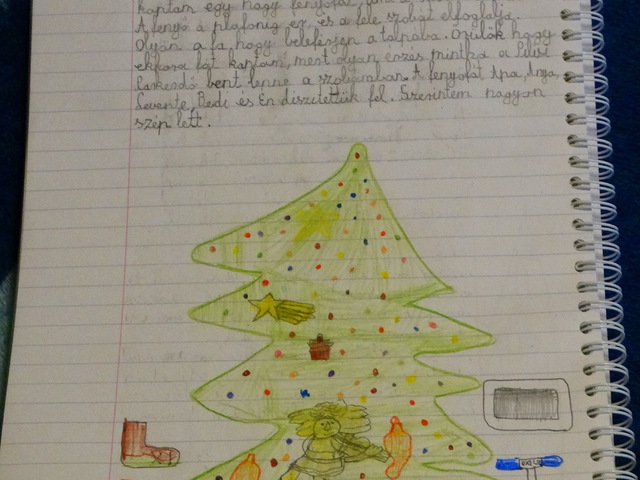 kaptam egy nagy fenyőfát,
A fenyő a plafonig ér, és a fele szobát elfoglalja.
Olyan a fa, hogy beleférjen a talpába. Örülök hogy
ekkora fát kaptam, mert olyan érzés mintha a
bent lenne a szobában. A fenyőfát Apa, Anya,
Levente, Bedi és Én díszítettük fel. Szerintem nagyon
szép lett.